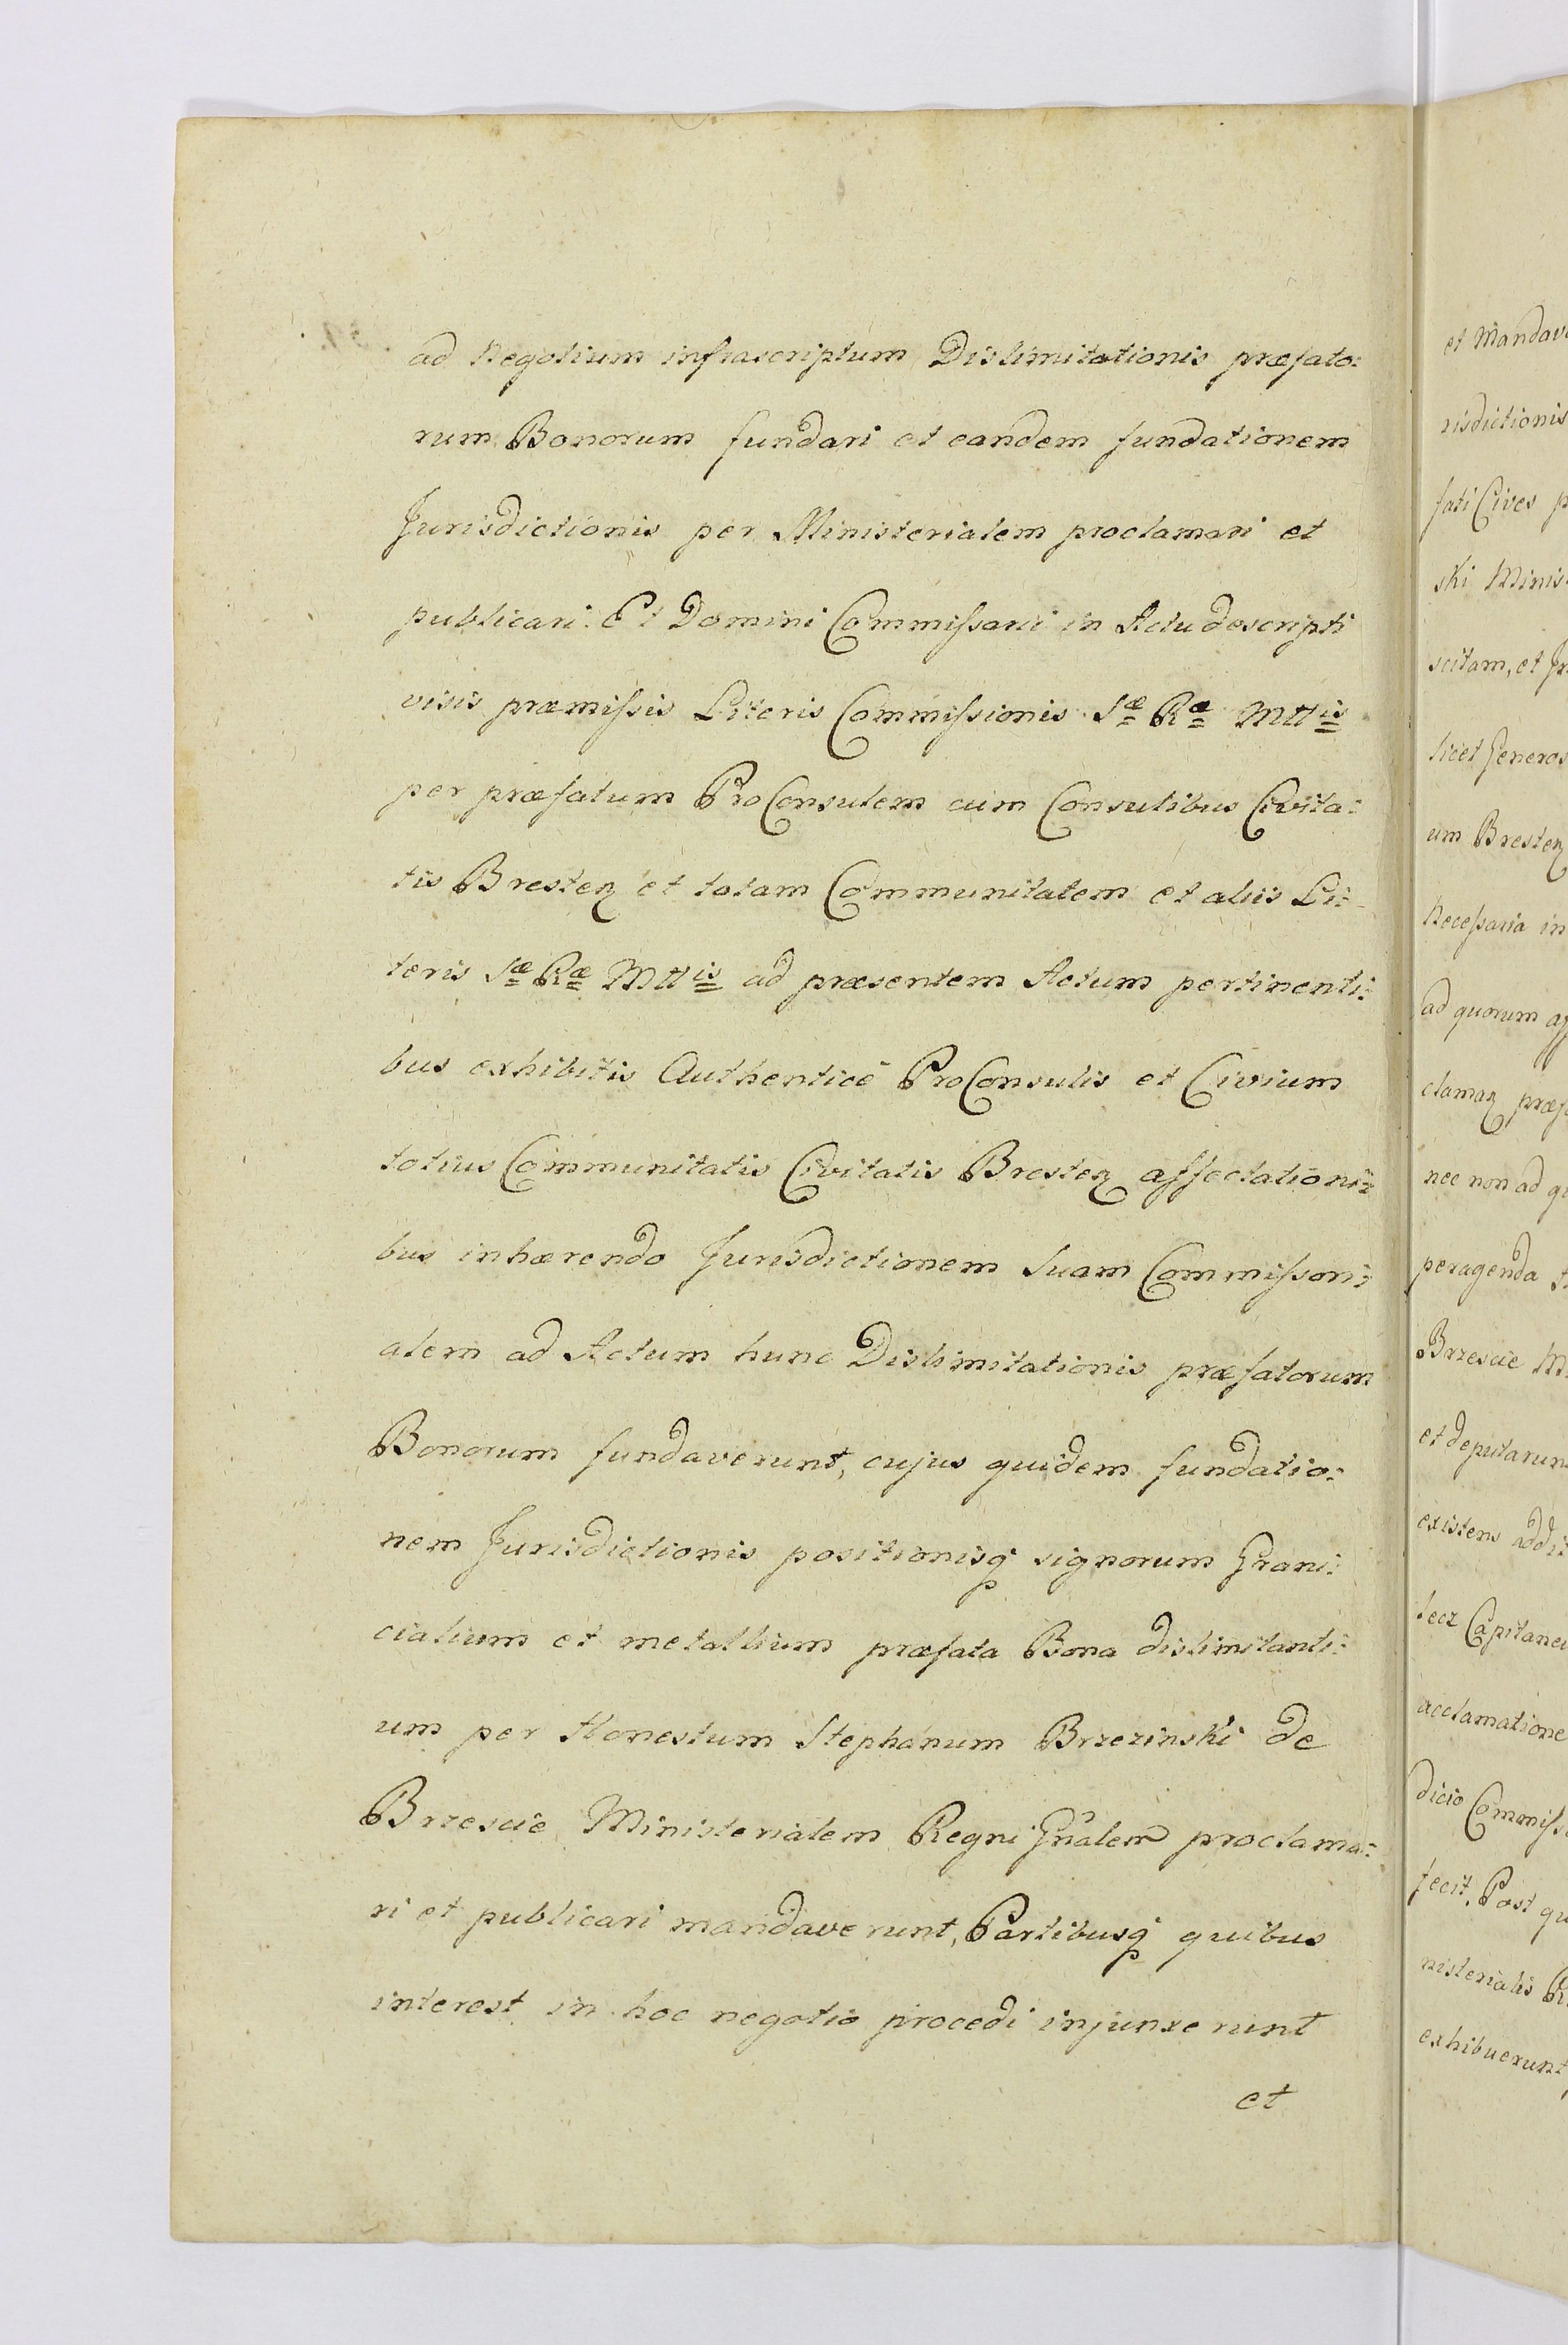 ad Negotium infrascriptum Dislimitationis præfato:
rum Bonorum fundari et eandem fundationem
Jurisdictionis per Ministerialem proclamari et
publicari. Et Domini Commißarii in Actu descripti
visis præmißis Literis Commißionis Sæ Ræ Mttis
per præfatum ProConsulem cum Consulibus Civita:
tis Bresteƞ et totam Communitatem et aliis Li:
teris Sæ Ræ Mttis ad præsentem Actum pertinenti:
bus exhibitis Authenticè ProConsulis et Civium
totius Communitatis Civitatis Bresteƞ affectationi:
bus inhærendo Jurisdictionem Suam Commißori:
alem ad Actum hunc Dislimitationis præfatorum
Bonorum fundaverunt, cujus quidem fundatio:
nem Jurisdictionis positionisq signorum Grani:
cialium et metallium præfata Bona dislimitanti:
um per Honestum Stephanum Brzezinski de
Brzescie Ministerialem Regni Gnalem proclama:
ri et publicari mandaverunt, Partibusq quibus
interest in hoc negotio procedi injunxerunt
et
et Mandav
risdictionis
fati Cives p
ski Minis
scitam, et
licet Generos
um Bresteƞ
Neceßaria in
ad quorum aff
clamaƞ præf
nec non ad q
peragenda
Brzescie M
et deputarun
existens addi
lecz Capitane
acclamatione
dicio Commiß
fecit, Post qu
nisterialis R
exhibuerunt